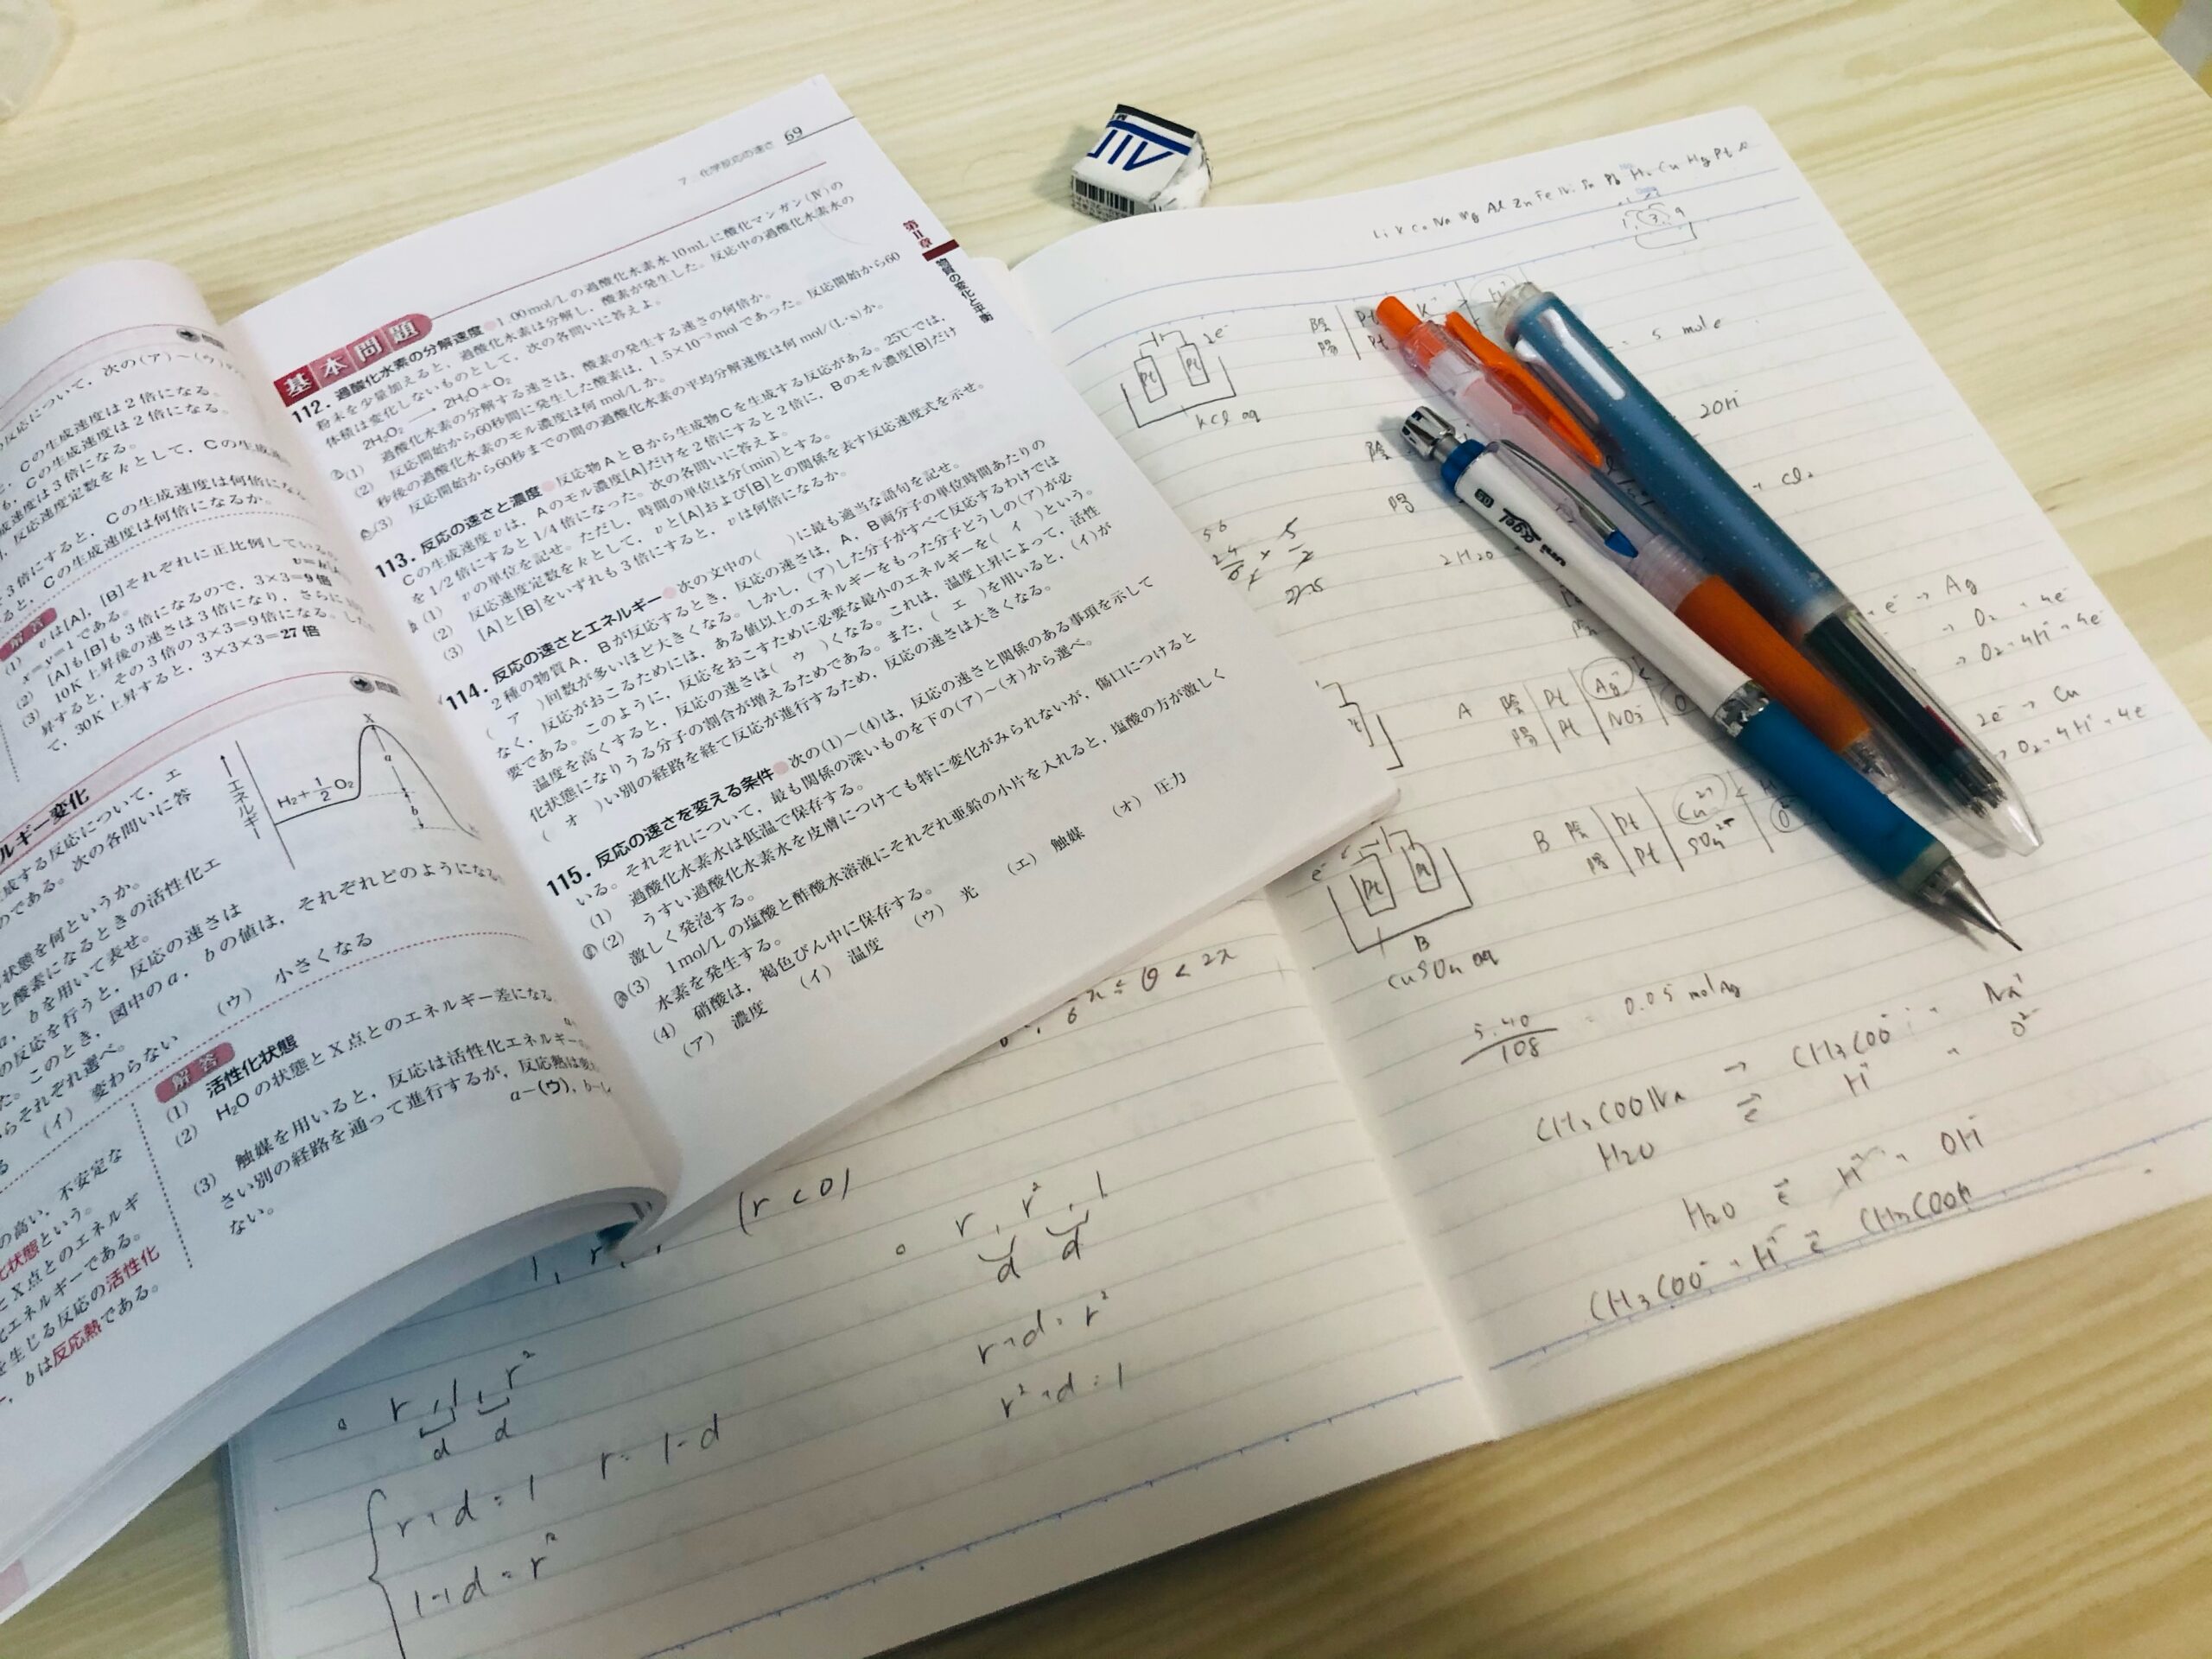 7 化学反応の速さ 69
第Ⅱ章 物質の変化と平衡
基本問題
112. 過酸化水素の分解速度 1.00mol/Lの過酸化水素水10mLに酸化マンガン(Ⅳ)の
粉末を少量加えると,過酸化水素は分解し,酸素が発生した。反応中の過酸化水素水の
体積は変化しないものとして,次の各問いに答えよ。
2H₂O₂ ⟶ 2H₂O+O₂
(1) 過酸化水素の分解する速さは,酸素の発生する速さの何倍か。
(2) 反応開始から60秒間に発生した酸素は,1.5×10⁻³molであった。反応開始から60
秒後の過酸化水素のモル濃度は何mol/Lか。
(3) 反応開始から60秒までの間の過酸化水素の平均分解速度は何mol/(L·s)か。
113. 反応の速さと濃度 反応物AとBから生成物Cを生成する反応がある。25℃では,
Cの生成速度vは,Aのモル濃度[A]だけを2倍にすると2倍に,Bのモル濃度[B]だけ
を1/2倍にすると1/4倍になった。次の各問いに答えよ。
(1) vの単位を記せ。ただし,時間の単位は分[min]とする。
(2) 反応速度定数をkとして,vと[A]および[B]との関係を表す反応速度式を示せ。
(3) [A]と[B]をいずれも3倍にすると,vは何倍になるか。
114. 反応の速さとエネルギー 次の文中の( )に最も適当な語句を記せ。
2種の物質A,Bが反応するとき,反応の速さは,A,B両分子の単位時間あたりの
( ア )回数が多いほど大きくなる。しかし,(ア)した分子がすべて反応するわけでは
なく,反応がおこるためには,ある値以上のエネルギーをもった分子どうしの(ア)が必
要である。このように,反応をおこすために必要な最小のエネルギーを( イ )という。
温度を高くすると,反応の速さは( ウ )くなる。これは,温度上昇によって,活性
化状態になりうる分子の割合が増えるためである。また,( エ )を用いると,(イ)が
( オ )い別の経路を経て反応が進行するため,反応の速さは大きくなる。
115. 反応の速さを変える条件 次の(1)~(4)は,反応の速さと関係のある事項を示して
いる。それぞれについて,最も関係の深いものを下の(ア)~(オ)から選べ。
(1) 過酸化水素水は低温で保存する。
(2) うすい過酸化水素水を皮膚につけても特に変化がみられないが,傷口につけると
激しく発泡する。
(3) 1mol/Lの塩酸と酢酸水溶液にそれぞれ亜鉛の小片を入れると,塩酸の方が激しく
水素を発生する。
(4) 硝酸は,褐色びん中に保存する。
(ア) 濃度 (イ) 温度 (ウ) 光 (エ) 触媒 (オ) 圧力
反応について,次の(ア)~(ウ)の
Cの生成速度は2倍になる。
Cの生成速度は2倍になる。
成速度は3倍になる。
反応速度定数をkとして,Cの生成
3倍にすると,Cの生成速度は何倍になる
ると,Cの生成速度は何倍になるか。
解答
(1) vは[A],[B]それぞれに正比例している
x=y=1である。
(2) [A]も[B]も3倍になるので,3×3=9倍
(3) 10K上昇後の速さは3倍になり,さらに
昇すると,その3倍の3×3=9倍になる。
て,30K上昇すると,3×3×3=27倍
ルギー変化
成する反応について,エ
のである。次の各問いに答
エネルギー
H₂+½O₂
X
a
b
状態を何というか。
と酸素になるときの活性化エ
a,bを用いて表せ。
の反応を行うと,反応の速さは
た。このとき,図中のa,bの値は,それぞれどのようになる
らそれぞれ選べ。
(イ) 変わらない (ウ) 小さくなる
解答
(1) 活性化状態
(2) H₂Oの状態とX点とのエネルギー差になる
(3) 触媒を用いると,反応は活性化エネルギー
さい別の経路を通って進行するが,反応熱は変
ない。
a-(ウ),b-
の高い,不安定な
化状態という。
とX点とのエネルギ
化エネルギーである。
を生じる反応の活性化
,bは反応熱である。
Li K Ca Na Mg Al Zn Fe Ni Sn Pb H₂ Cu Hg Pt
陰 Pt K⁺ H⁺
陽 Pt
Pt Pt 2e⁻
KCl aq
5 mole
2OH⁻
陰
陽
Cl₂
2H₂O
e⁻ → Ag
→ O₂ + 4e⁻
→ O₂ + 4H⁺ + 4e⁻
A 陰 Pt Ag⁺
陽 Pt NO₃⁻
2e⁻ → Cu
→ O₂ + 4H⁺ + 4e⁻
B 陰 Pt Cu²⁺
陽 Pt SO₄²⁻
e⁻ Pt Pt
B
CuSO₄ aq
5.40/108 = 0.05 mol Ag
CH₃COONa → CH₃COO⁻ + Na⁺
H₂O ⇄ H⁺ +
H₂O ⇄ H⁺ + OH⁻
CH₃COO⁻ + H⁺ ⇄ CH₃COOH
θ < 2π
(r < 0)
r, r², 1
d d
r+d=r²
r²+d=1
r, 1, r²
d d
r+d=1 r=1-d
1+d=r²
uni
0.5